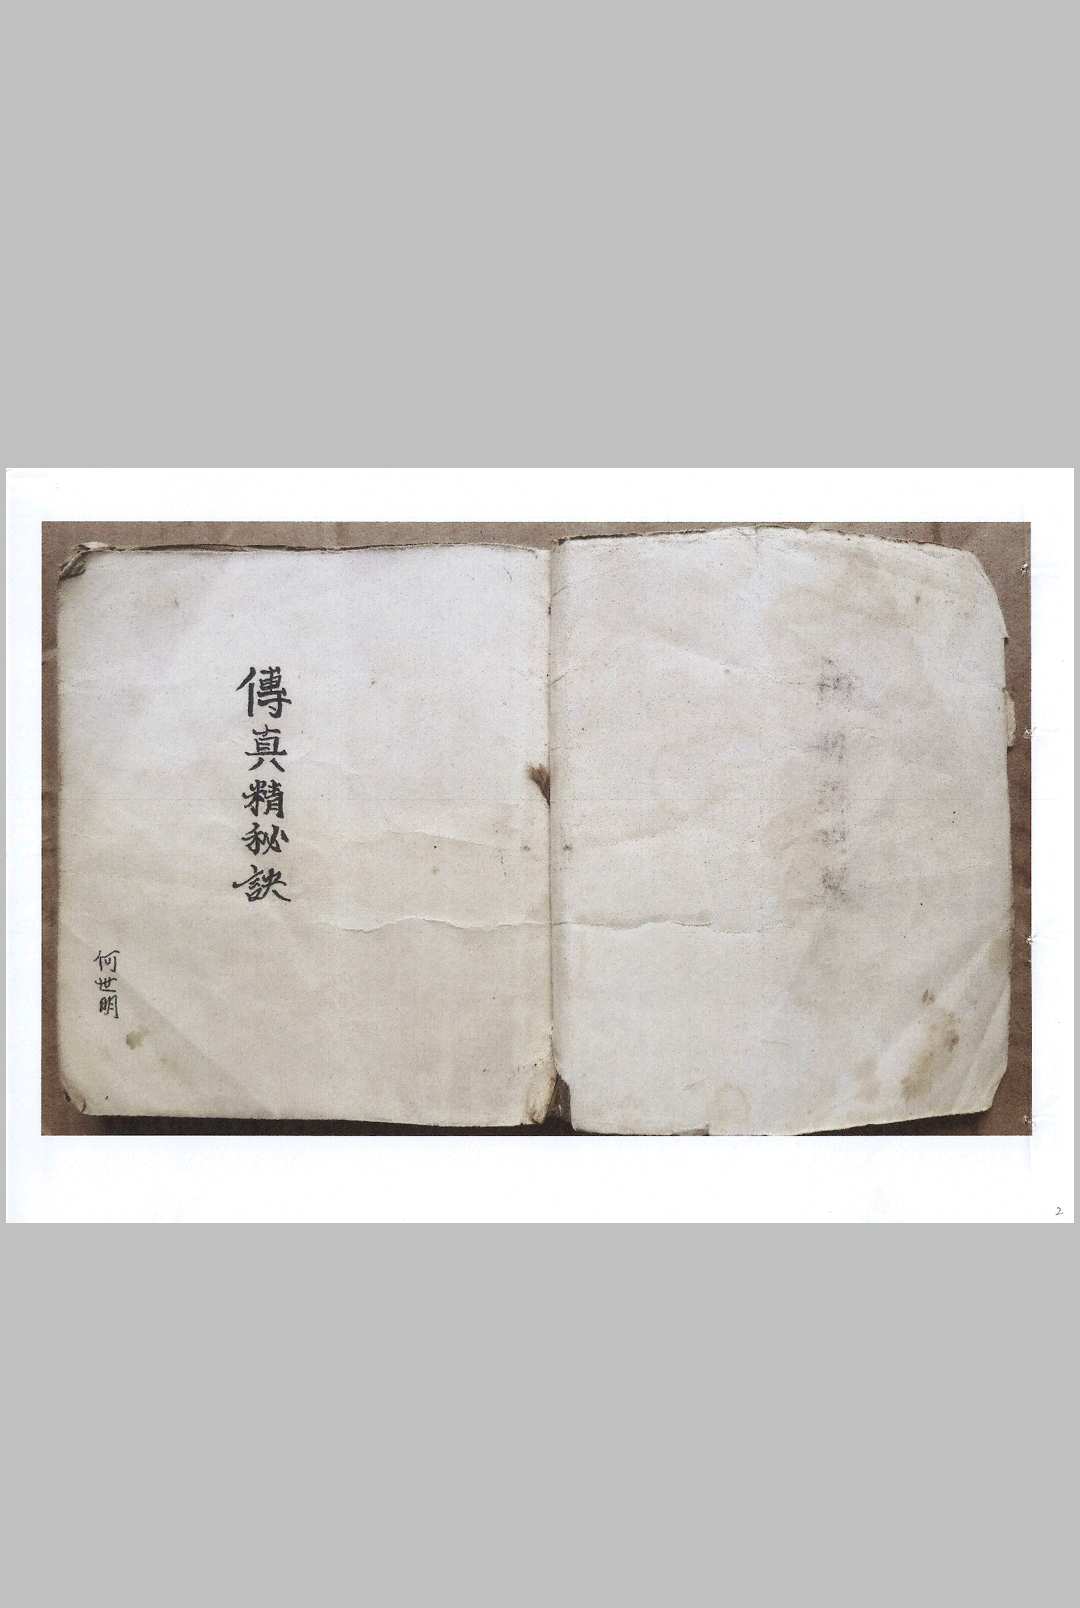 傳真精秘訣
何世明
2